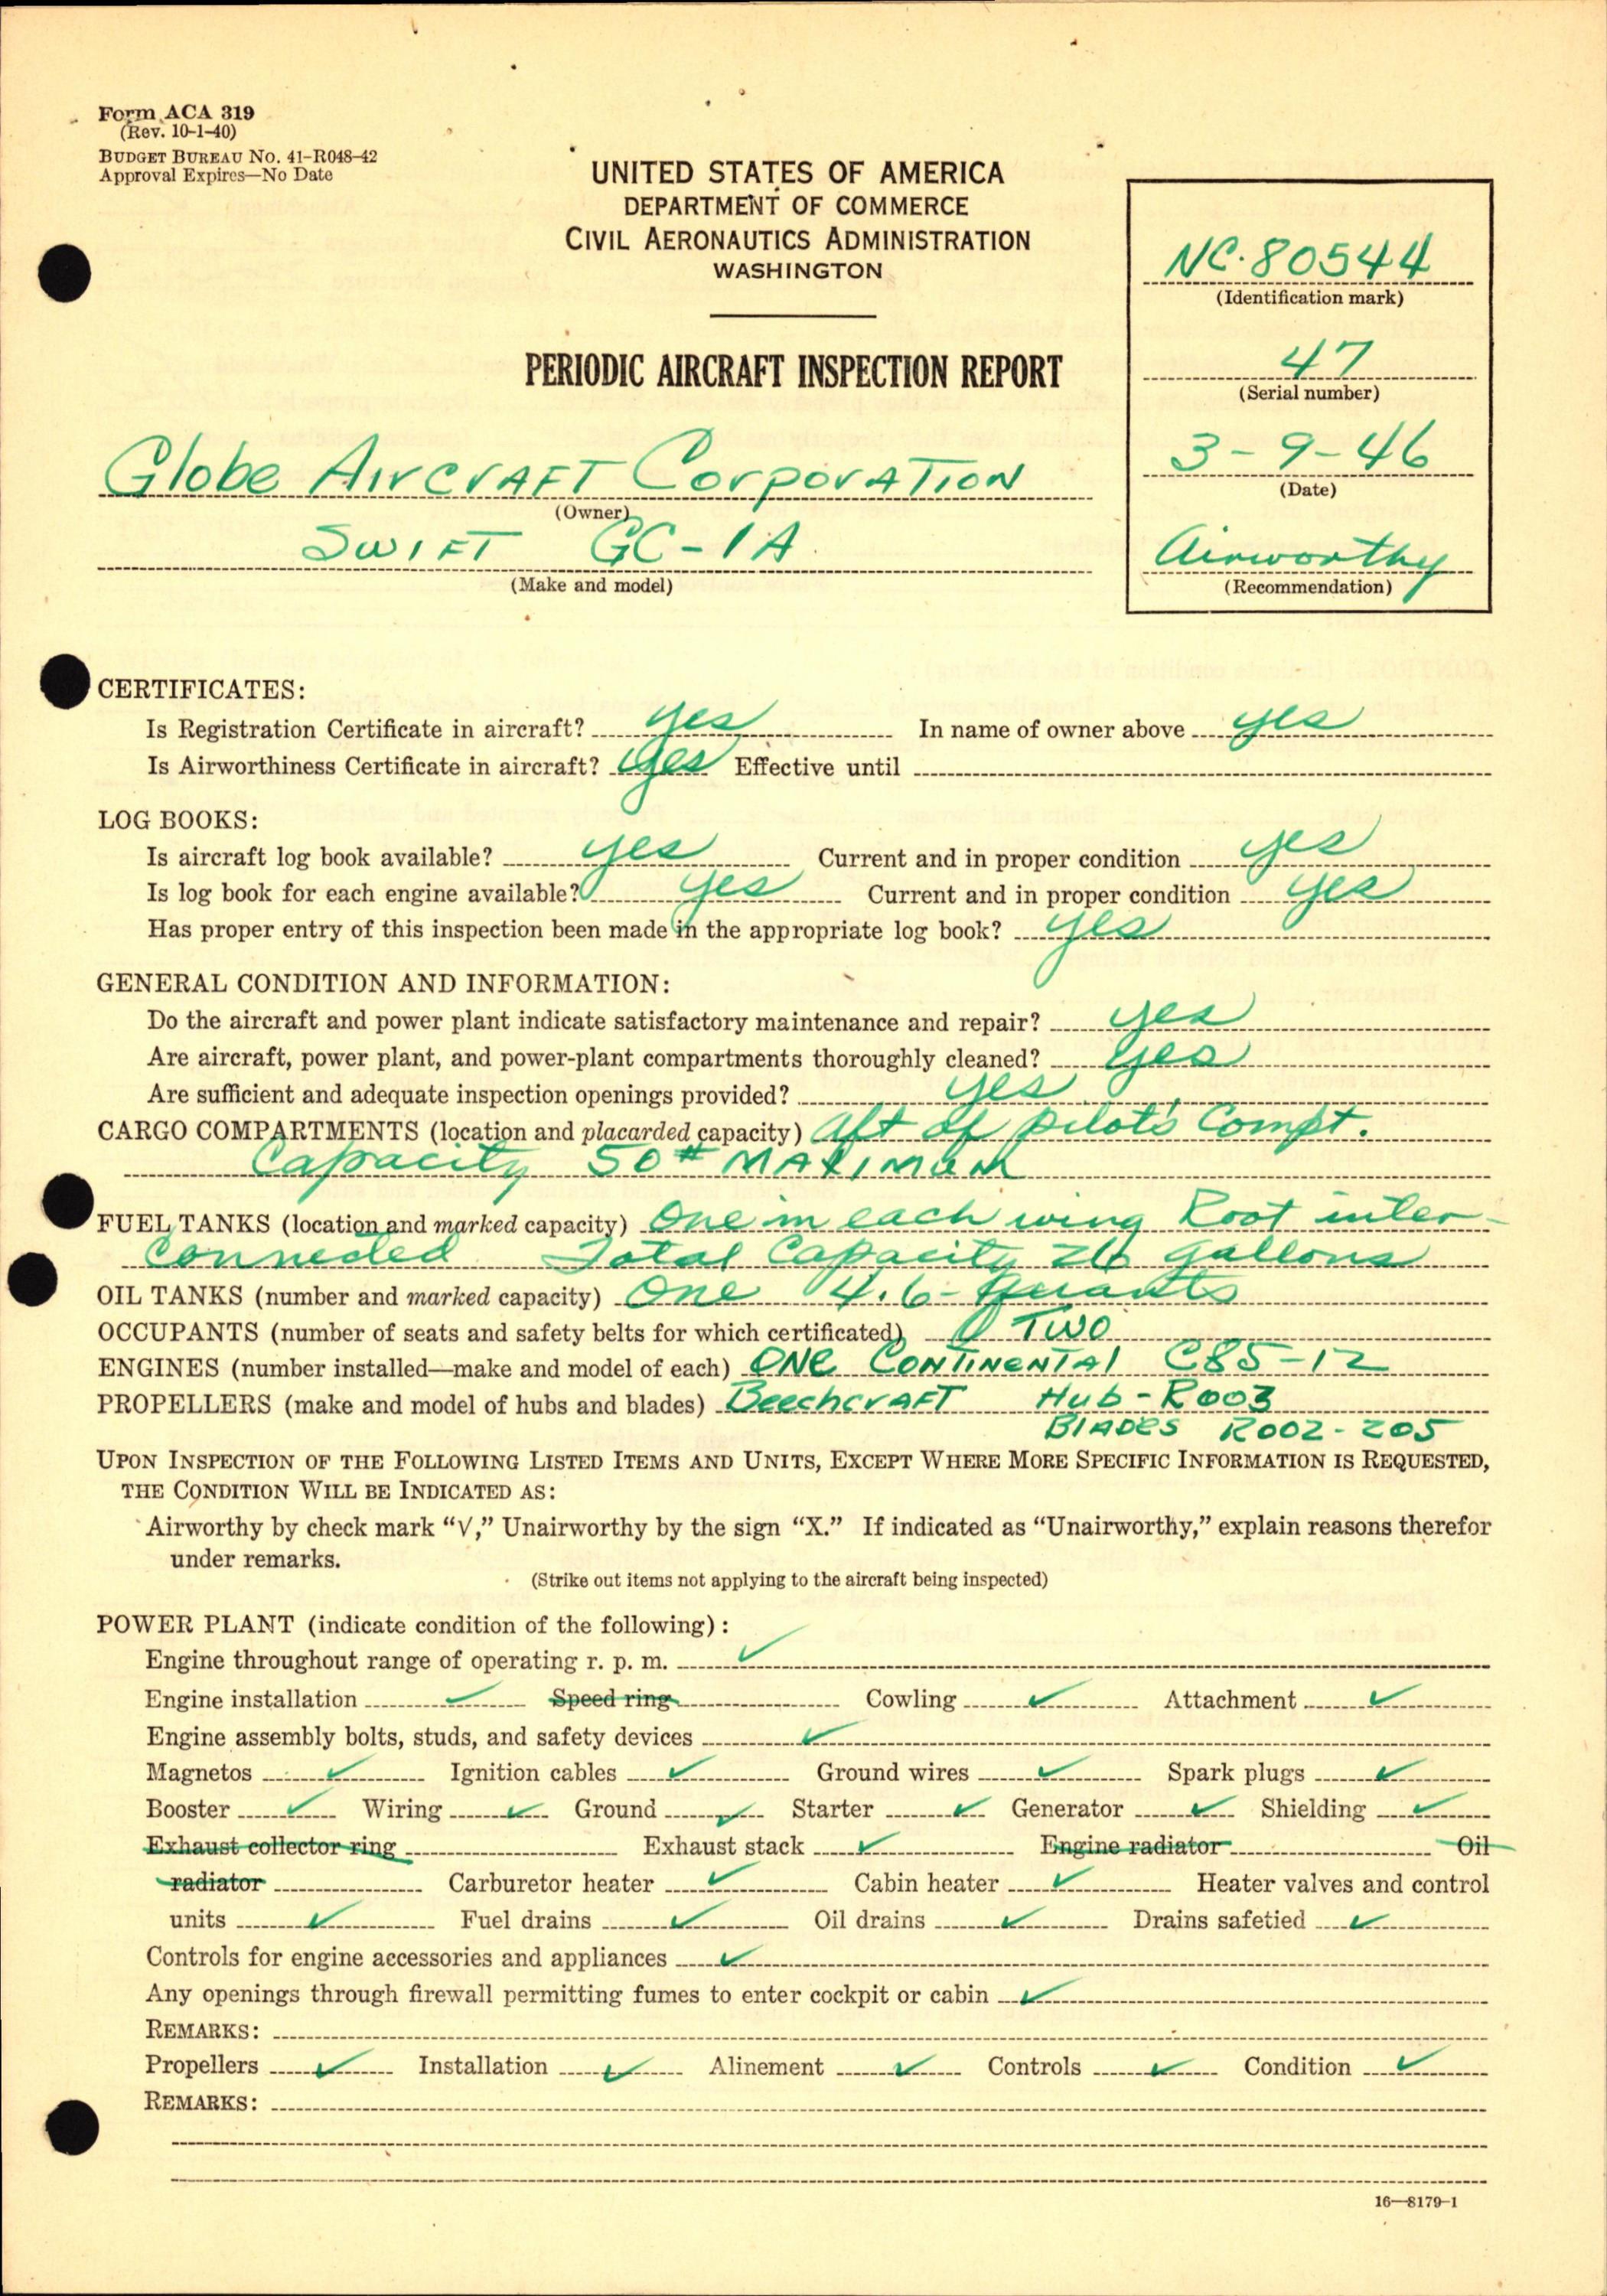 Form ACA 319
(Rev. 10-1-40)
BUDGET BUREAU NO. 41-R048-42
Approval Expires—No Date
UNITED STATES OF AMERICA
DEPARTMENT OF COMMERCE
CIVIL AERONAUTICS ADMINISTRATION
WASHINGTON
NC-80544
(Identification mark)
PERIODIC AIRCRAFT INSPECTION REPORT
47
(Serial number)
Globe AircrAFT CorporATION
(Owner)
3-9-46
(Date)
SWIFT GC-1A
(Make and model)
Airworthy
(Recommendation)
CERTIFICATES:
Is Registration Certificate in aircraft? yes In name of owner above yes
Is Airworthiness Certificate in aircraft? yes Effective until
LOG BOOKS:
Is aircraft log book available? yes Current and in proper condition yes
Is log book for each engine available? yes Current and in proper condition yes
Has proper entry of this inspection been made in the appropriate log book? yes
GENERAL CONDITION AND INFORMATION:
Do the aircraft and power plant indicate satisfactory maintenance and repair? yes
Are aircraft, power plant, and power-plant compartments thoroughly cleaned? yes
Are sufficient and adequate inspection openings provided? yes
CARGO COMPARTMENTS (location and placarded capacity) aft of pilot's Compt.
Capacity 50# MAXIMUM
FUEL TANKS (location and marked capacity) One in each wing Root inter-
connected Total Capacity 26 gallons
OIL TANKS (number and marked capacity) One 4.6- Quarts
OCCUPANTS (number of seats and safety belts for which certificated) TWO
ENGINES (number installed—make and model of each) ONE CONTINENTAL C85-12
PROPELLERS (make and model of hubs and blades) BeechcrAFT Hub-R003
BlADES R002-205
UPON INSPECTION OF THE FOLLOWING LISTED ITEMS AND UNITS, EXCEPT WHERE MORE SPECIFIC INFORMATION IS REQUESTED,
THE CONDITION WILL BE INDICATED AS:
Airworthy by check mark “√,” Unairworthy by the sign “X.” If indicated as “Unairworthy,” explain reasons therefor
under remarks.
(Strike out items not applying to the aircraft being inspected)
POWER PLANT (indicate condition of the following):
Engine throughout range of operating r. p. m. ✓
Engine installation ✓ Speed ring Cowling ✓ Attachment ✓
Engine assembly bolts, studs, and safety devices ✓
Magnetos ✓ Ignition cables ✓ Ground wires ✓ Spark plugs ✓
Booster ✓ Wiring ✓ Ground ✓ Starter ✓ Generator ✓ Shielding ✓
Exhaust collector ring Exhaust stack ✓ Engine radiator Oil
radiator Carburetor heater ✓ Cabin heater ✓ Heater valves and control
units ✓ Fuel drains ✓ Oil drains ✓ Drains safetied ✓
Controls for engine accessories and appliances ✓
Any openings through firewall permitting fumes to enter cockpit or cabin ✓
REMARKS:
Propellers ✓ Installation ✓ Alinement ✓ Controls ✓ Condition ✓
REMARKS:
16—8179-1